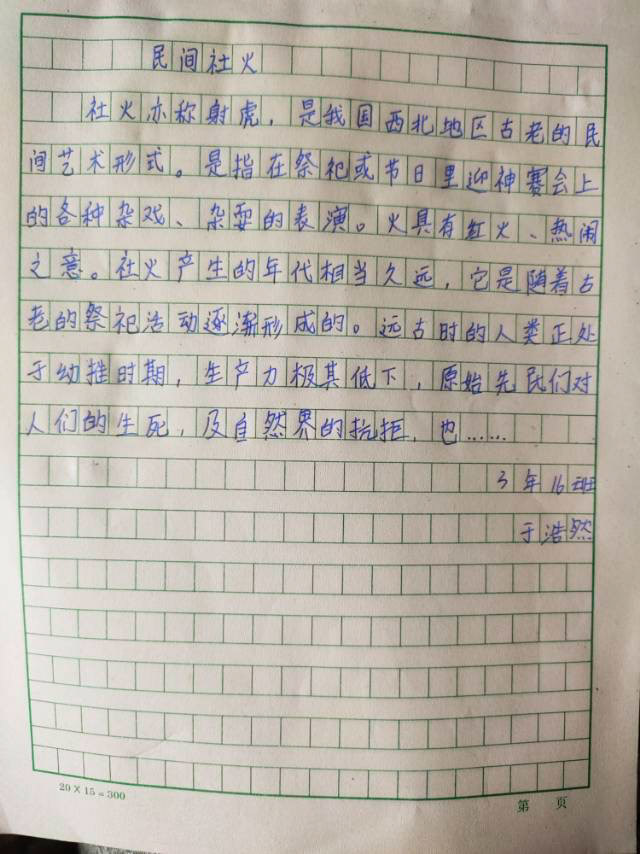 民间社火
社火亦称射虎，是我国西北地区古老的民
间艺术形式。是指在祭祀或节日里迎神赛会上
的各种杂戏、杂耍的表演。火具有红火、热闹
之意。社火产生的年代相当久远，它是随着古
老的祭祀活动逐渐形成的。远古时的人类正处
于幼稚时期，生产力极其低下，原始先民们对
人们的生死，及自然界的抗拒，也……
3年16班
于浩然
20×15=300
第 页